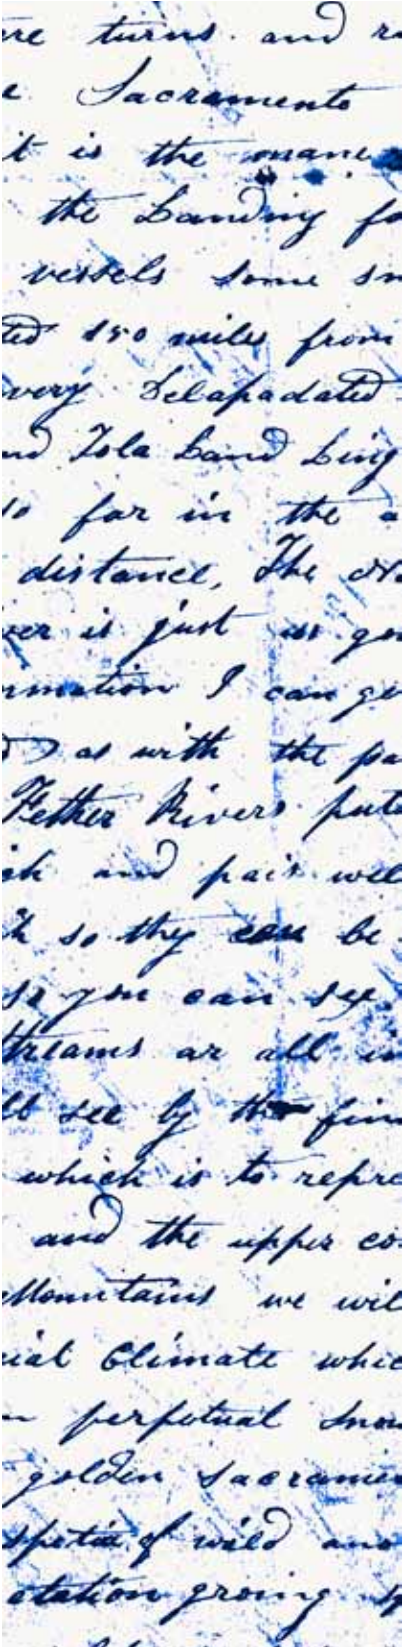 ere turns. and r
e Sacramento
it is the mane
the Landing fo
vessels some sm
ted 150 miles from
very Delapadated
nd Lola Land Ling
so far in the a
distance, The
ver is just as go
rmation I can ge
as with the pa
Fether Rivers puts
ch and pair wel
so they can be
so you can see,
treams ar all in
ll see by the fin
which is to repre
and the upper co
Mountains we wil
ial Climate whic
n perpetual snow
golden sacramen
spetia of wild and
etation groing sp